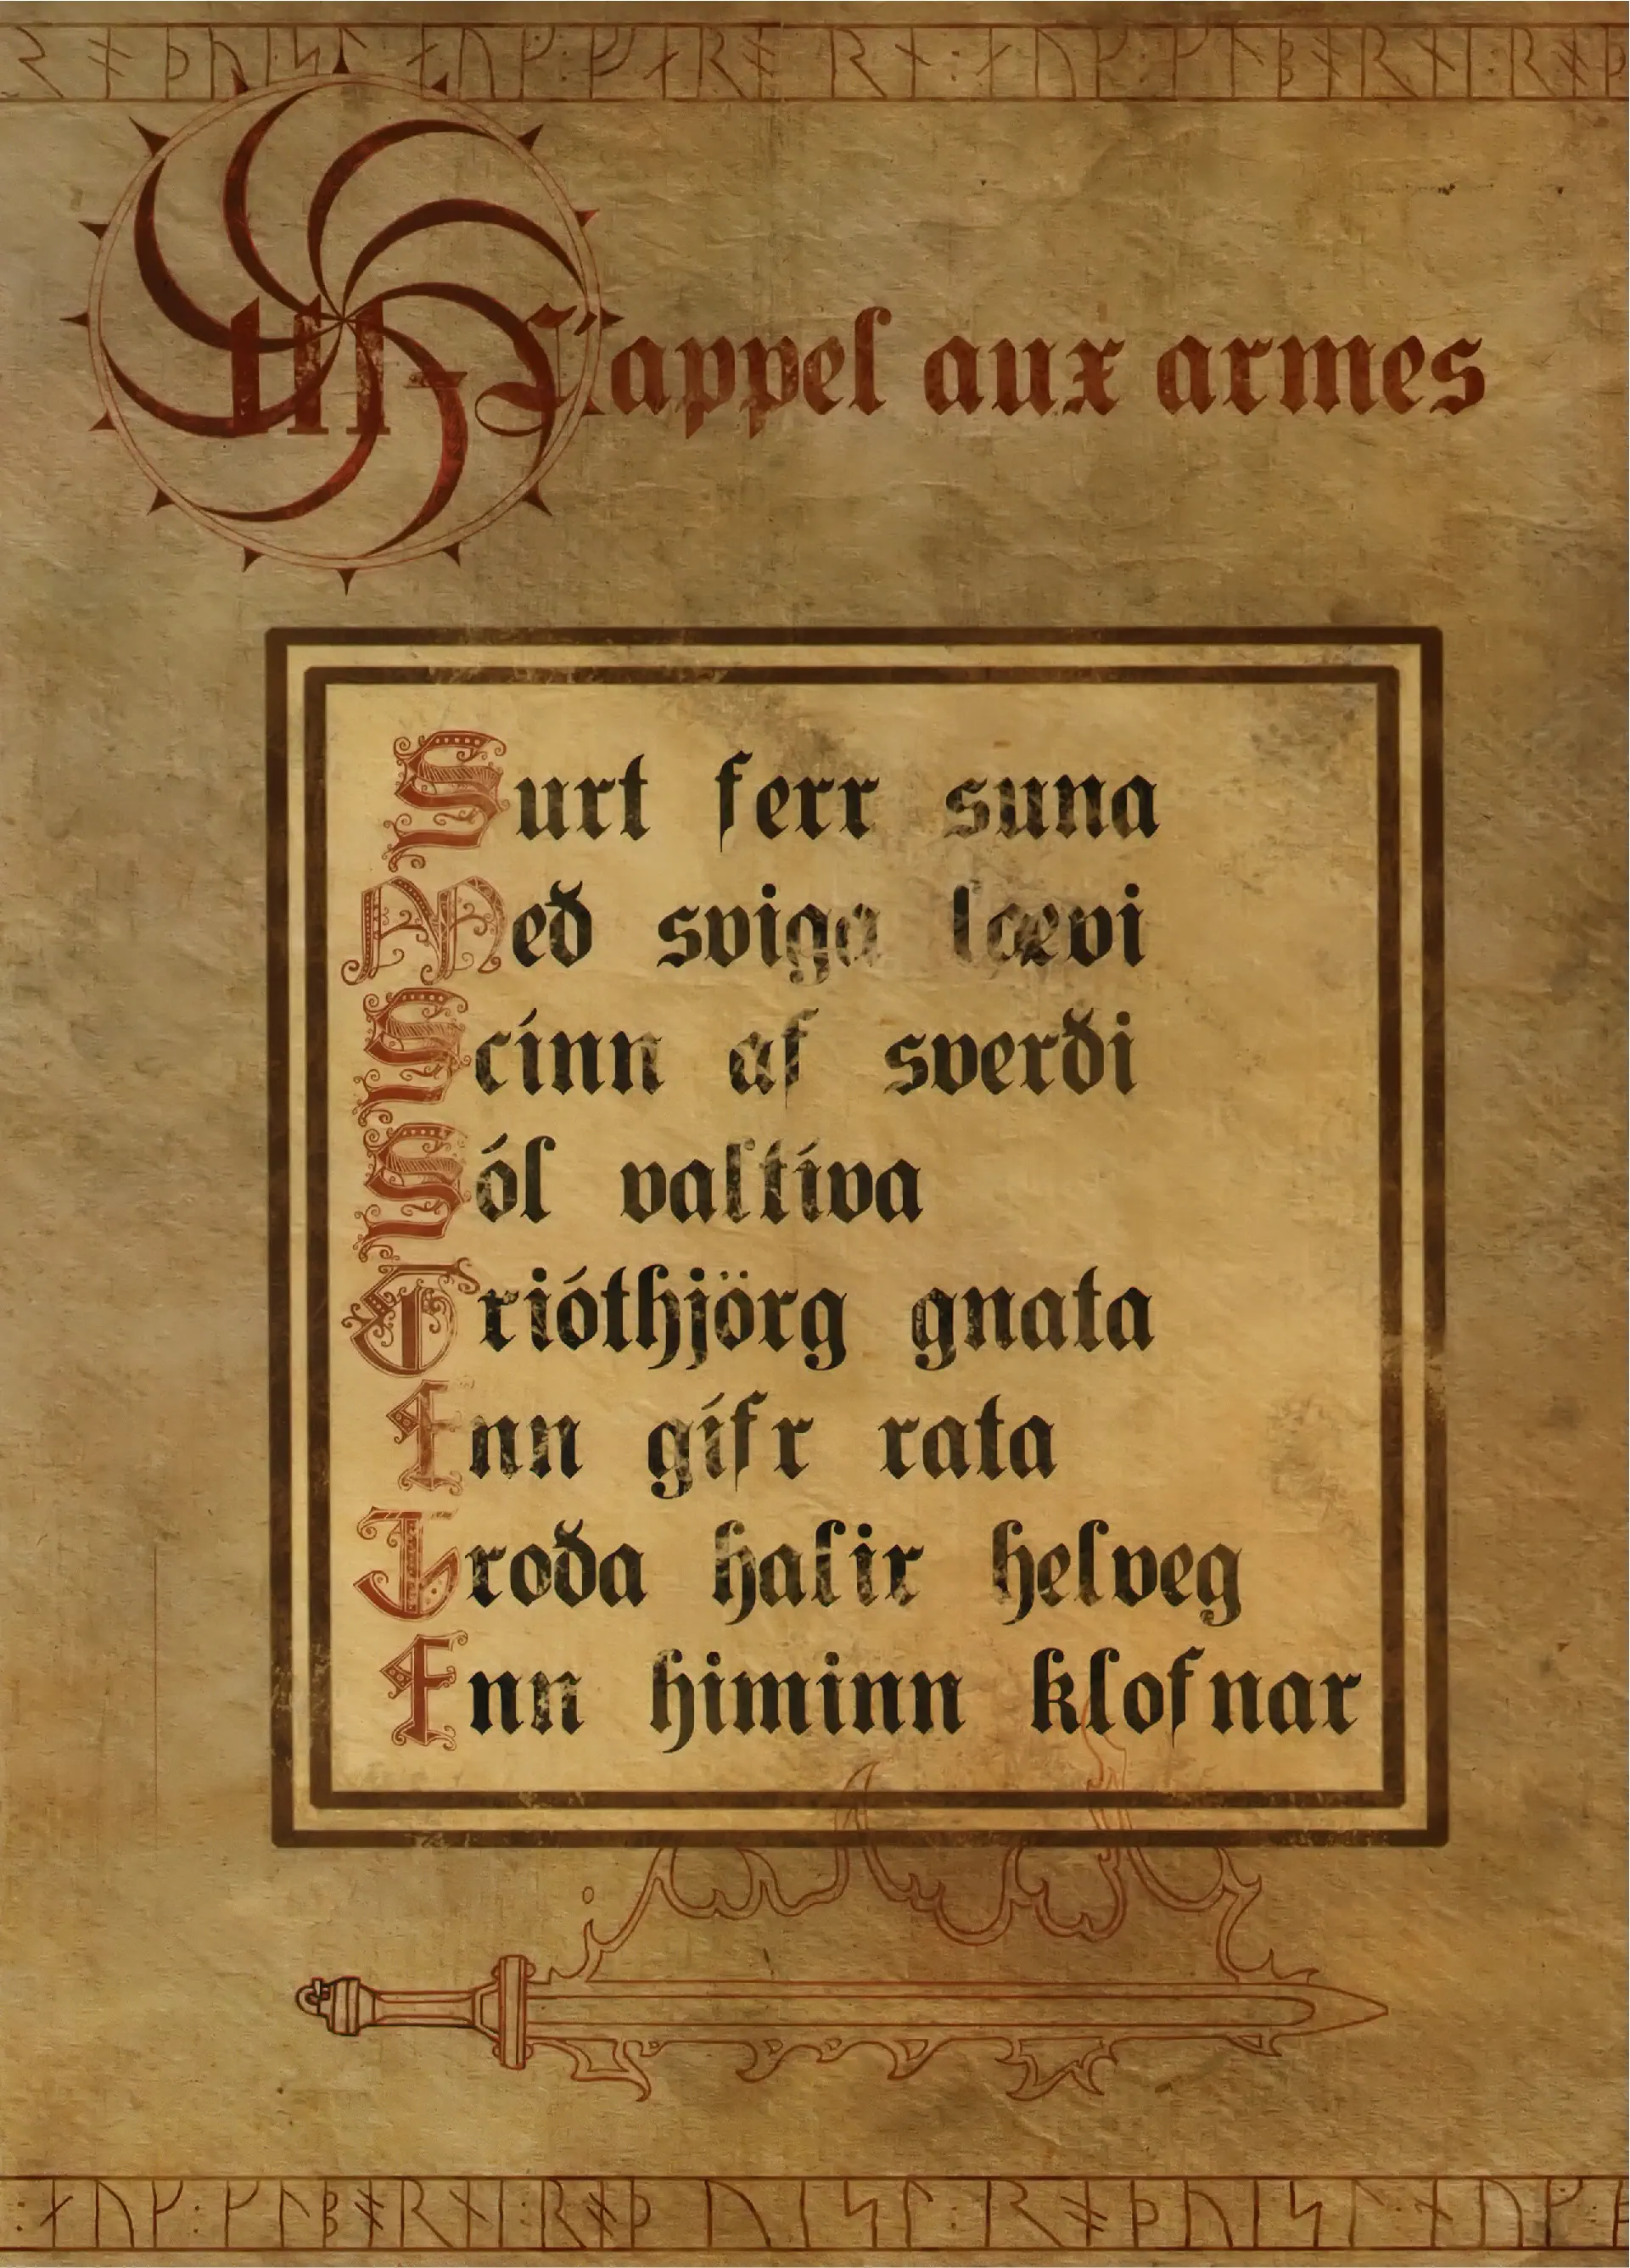 III - L'appel aux armes
Surt ferr suna
Með sviga lævi
Scínn af sverði
Sól valtíva
Grióthjörg gnata
Enn gífr rata
Troða halir helveg
Enn himinn klofnar